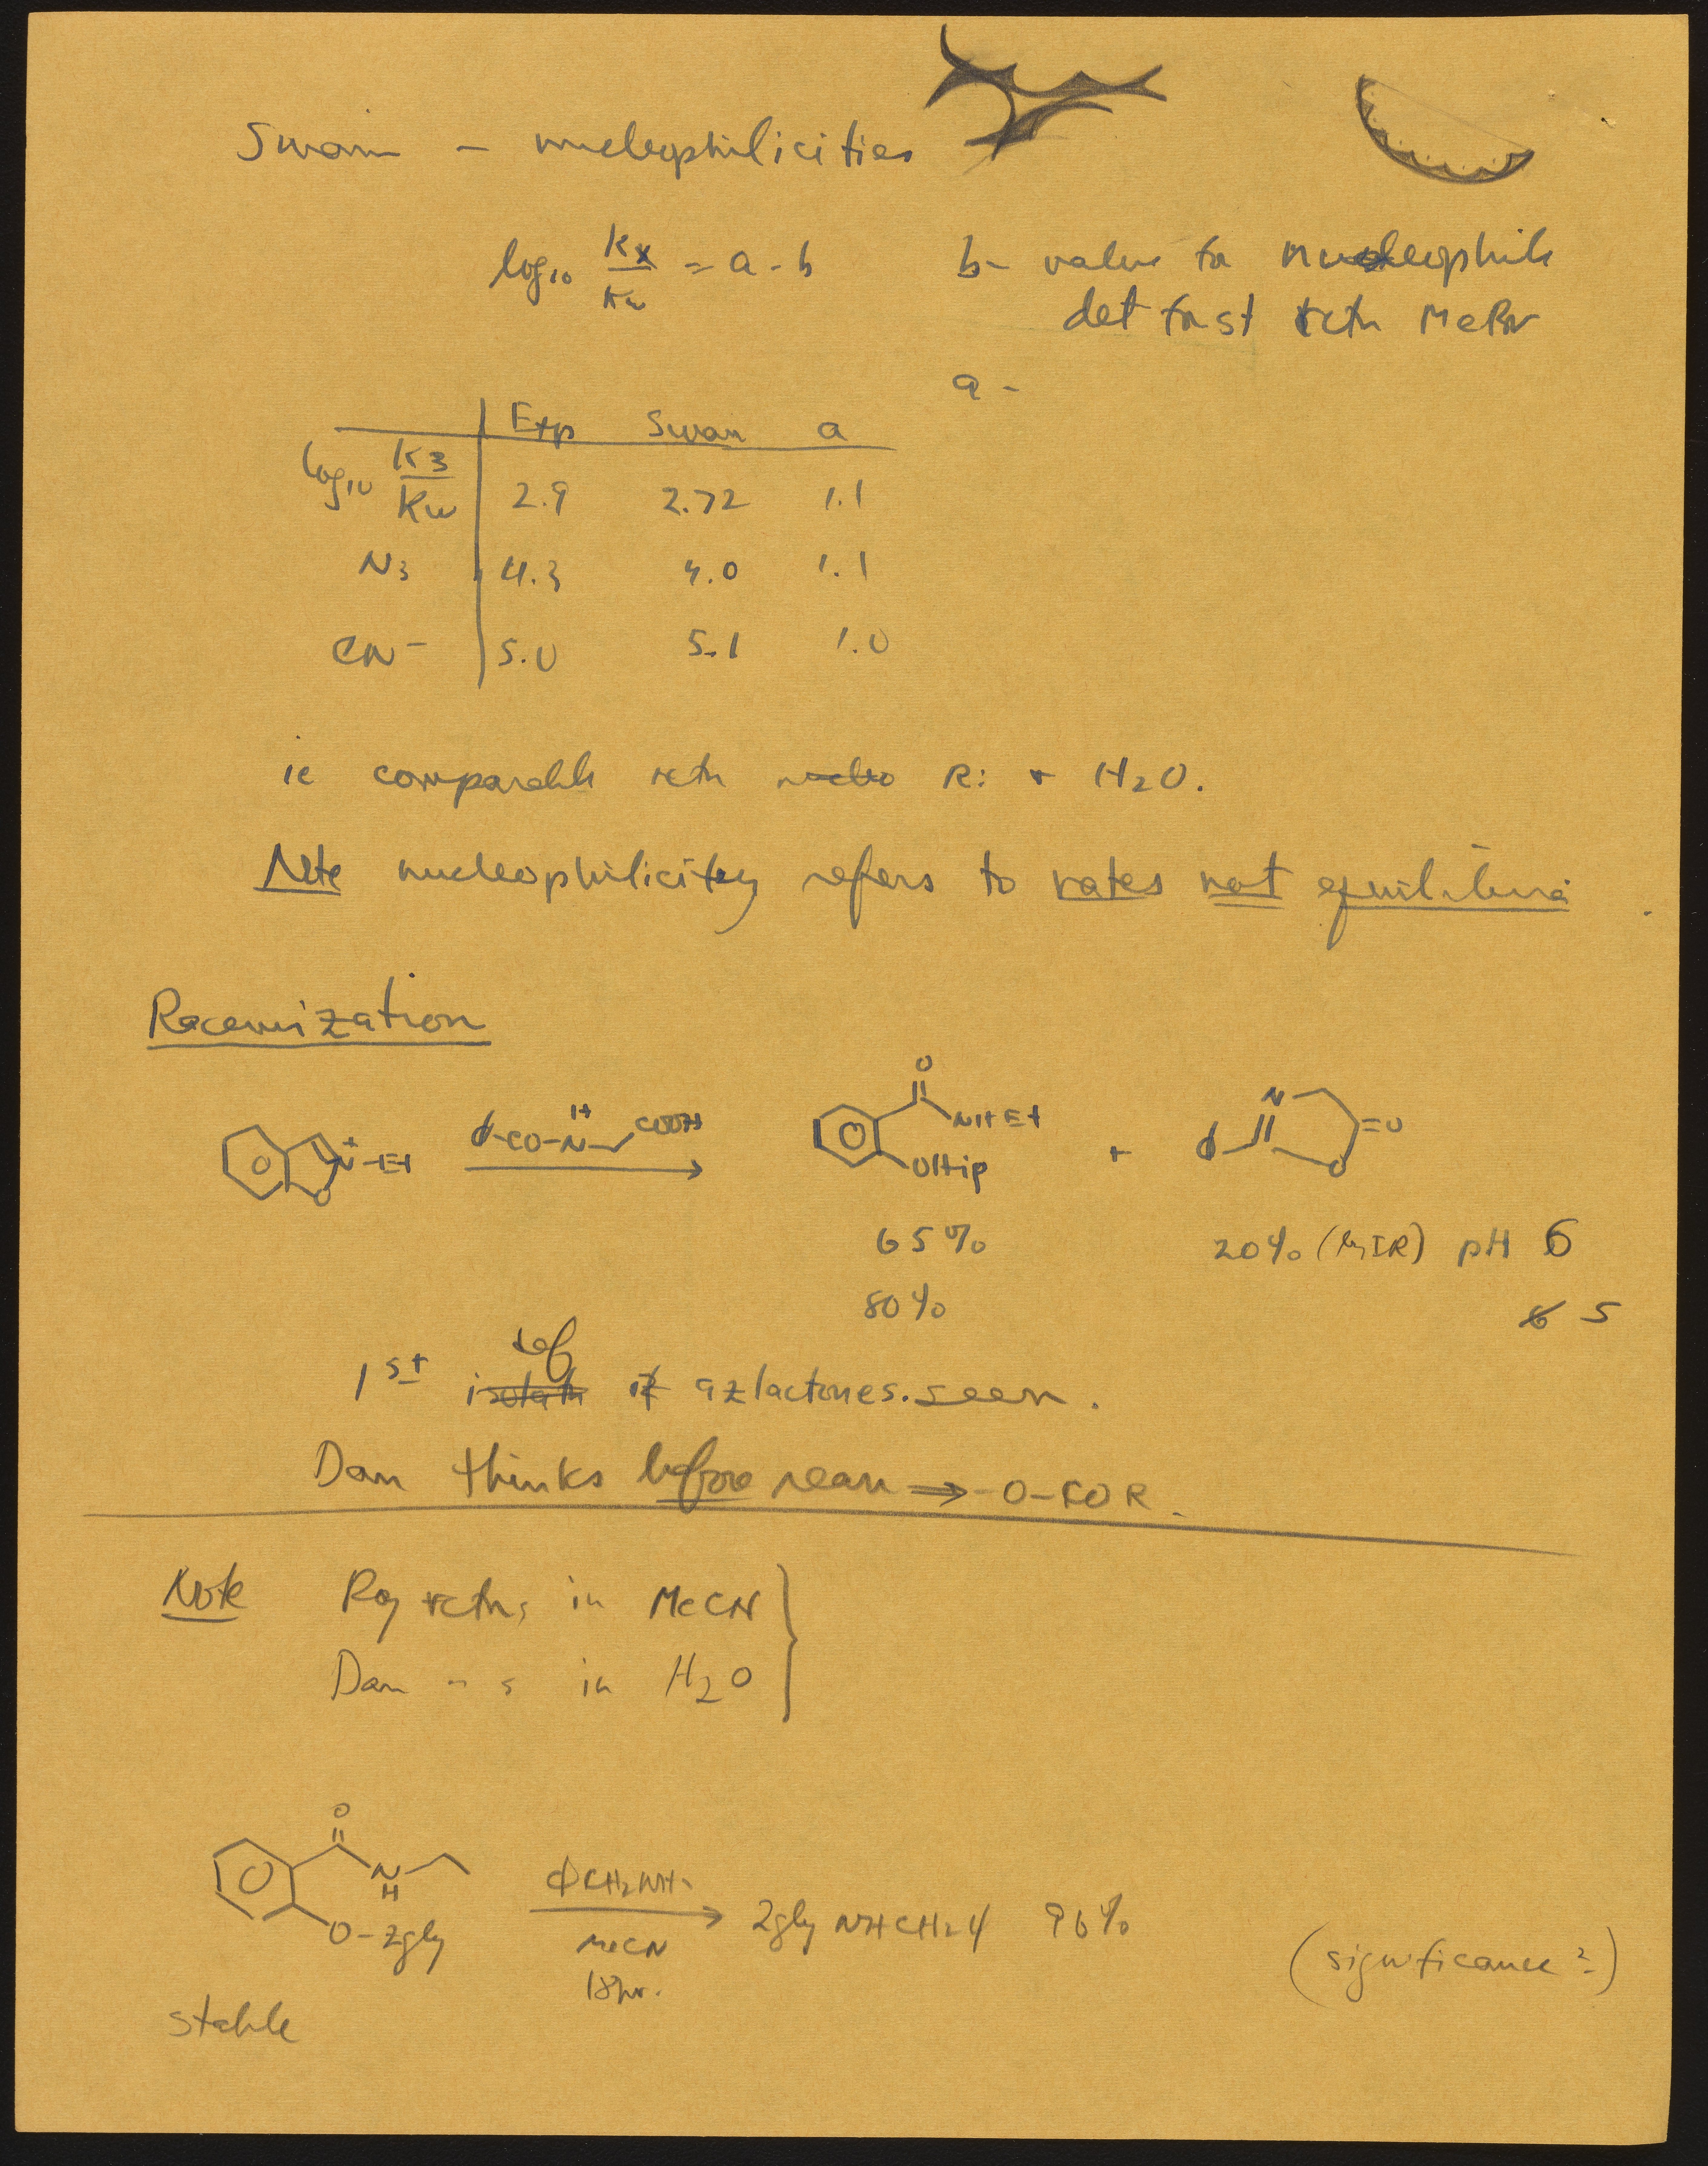 Swain - nucleophilicities
log10 Kx/Kw = a - b
b - value for nucleophile
det from st rctn MeBr
a -
Exp Swain a
log10 K3/Kw 2.9 2.72 1.1
N3 4.3 4.0 1.1
CN- 5.0 5.1 1.0
ie comparable rctn R: + H2O.
Note nucleophilicity refers to rates not equilibria
Racemization
O
N+-Et
O
φ-CO-N-COOH
H
O
NHEt
OHip
+
φ
N
=O
O
65% 20% (by IR) pH 6
80% 5
1st azlactones. seen.
Dan thinks before rearr ⇒ -O-COR.
Note Roy rctns in MeCN
Dan " s in H2O
O
N
H
O-Zgly
φCH2NH2
MeCN
18hr.
Zgly NHCH2φ 96%
(significance?)
stable